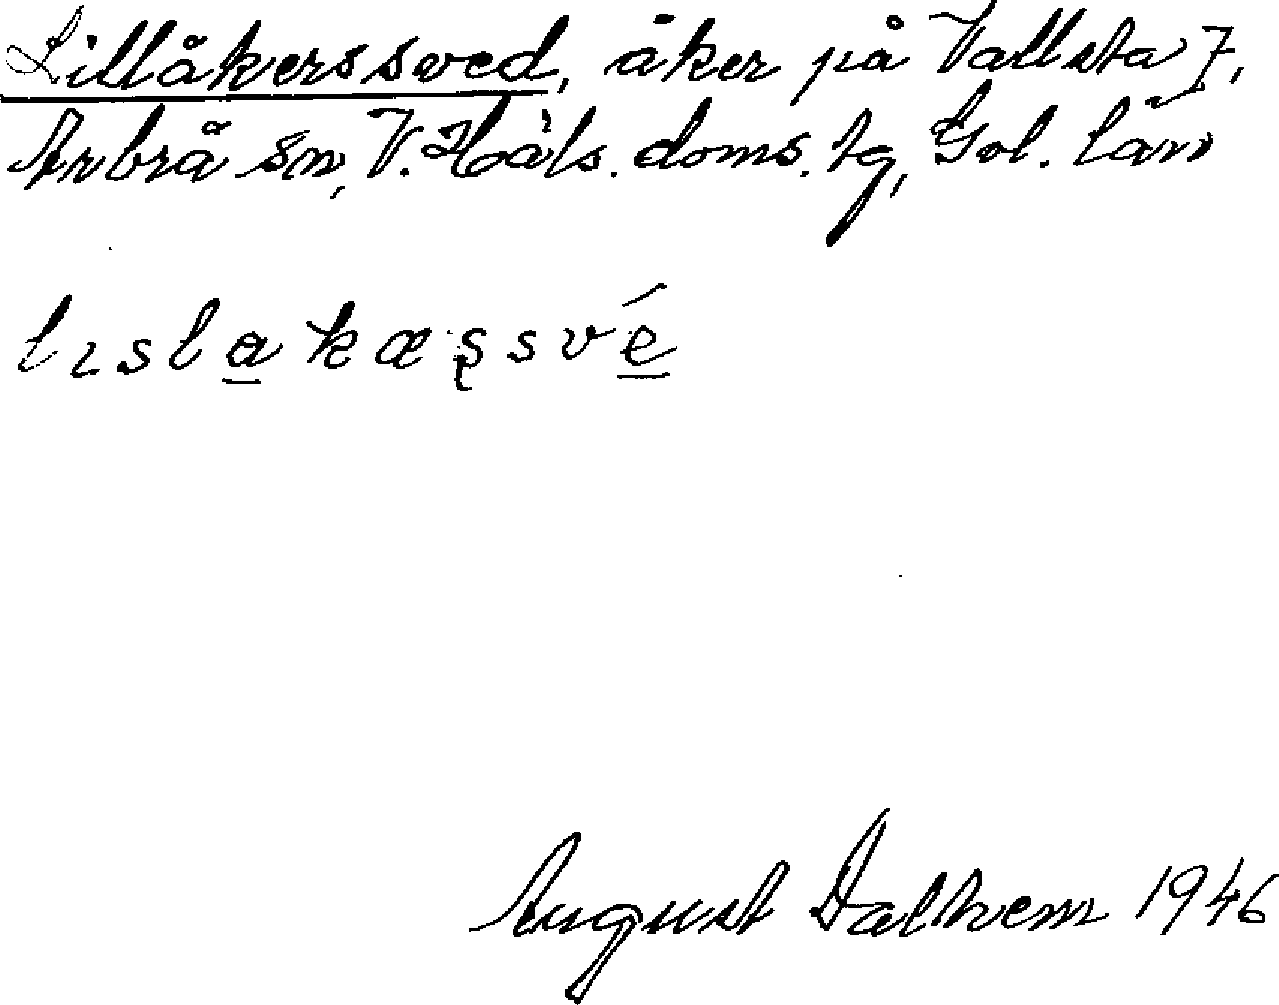 Lillåkerssved, åker på Vallsta 7,
Arbrå sn, V. Häls. doms. tg, Gvl. län
lısla̲kæs̨své̲
August Dalhem 1946